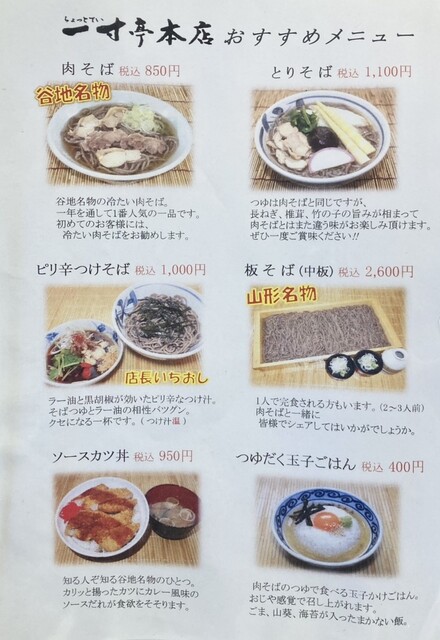 ちょっとてい
一寸亭本店 おすすめメニュー
肉そば 税込 850円
谷地名物
谷地名物の冷たい肉そば。
一年を通して1番人気の一品です。
初めてのお客様には、
冷たい肉そばをお勧めします。
とりそば 税込 1,100円
つゆは肉そばと同じですが、
長ねぎ、椎茸、竹の子の旨みが相まって
肉そばとはまた違う味がお楽しみ頂けます。
ぜひ一度ご賞味ください!!
ピリ辛つけそば 税込 1,000円
店長いちおし
ラー油と黒胡椒が効いたピリ辛なつけ汁。
そばつゆとラー油の相性バツグン。
クセになる一杯です。(つけ汁温)
板そば(中板) 税込 2,600円
山形名物
1人で完食される方もいます。(2〜3人前)
肉そばと一緒に
皆様でシェアしてはいかがでしょうか。
ソースカツ丼 税込 950円
知る人ぞ知る谷地名物のひとつ。
カリッと揚ったカツにカレー風味の
ソースだれが食欲をそそります。
つゆだく玉子ごはん 税込 400円
肉そばのつゆで食べる玉子かけごはん。
おじや感覚で召し上がれます。
ごま、山葵、海苔が入ったまかない飯。